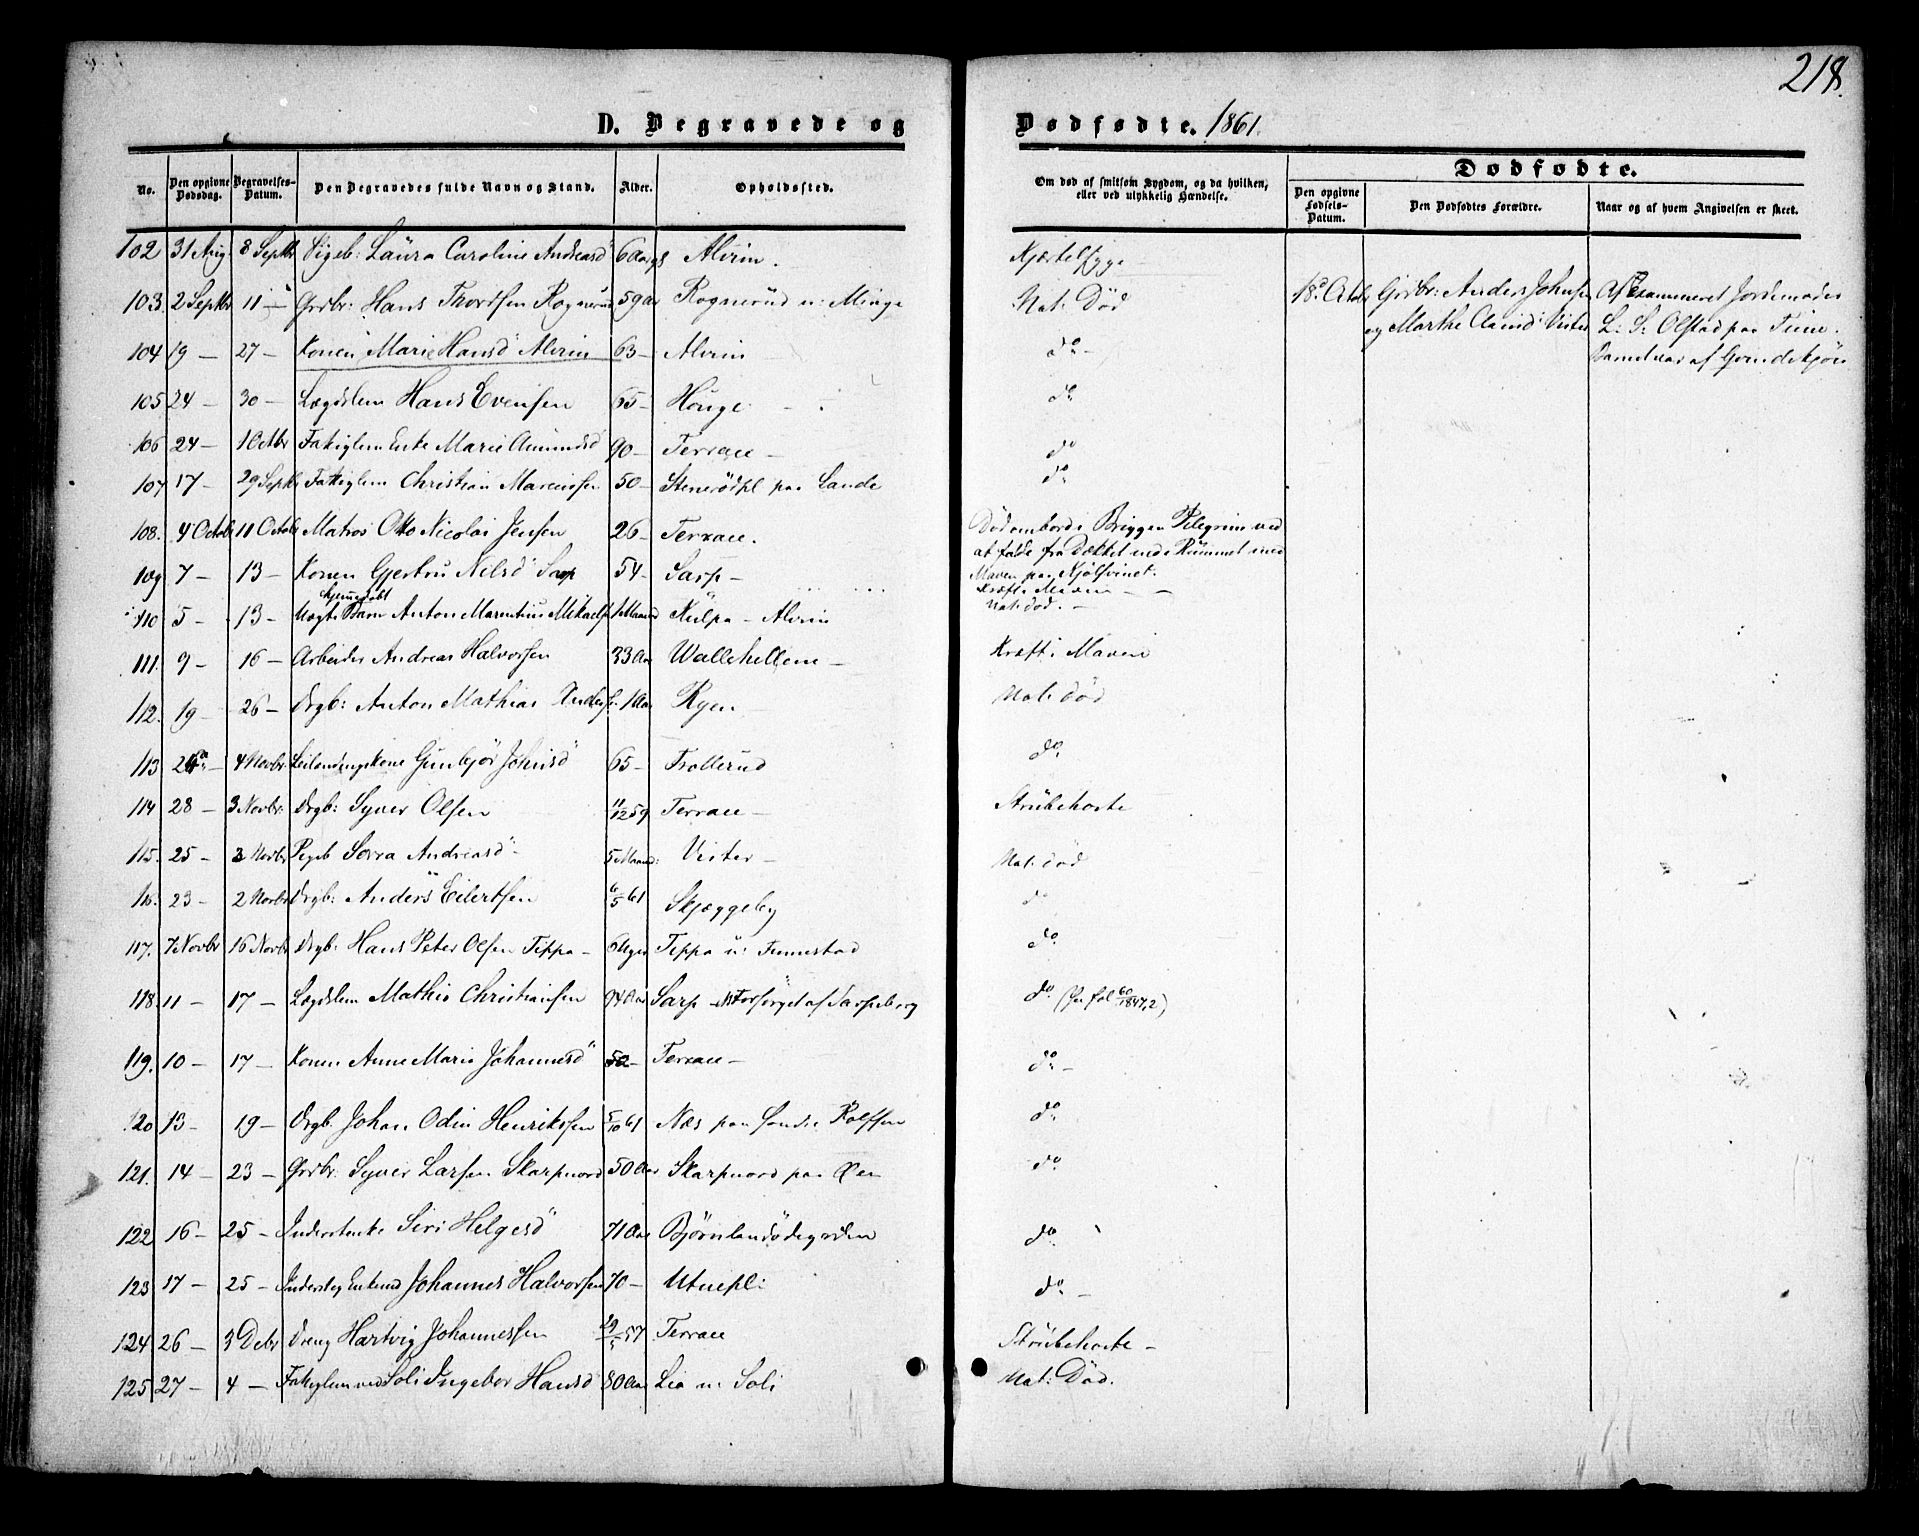 218.
D. Begravede og Dødfødte. 1861.
No. Den opgivne Dødsdag. Begravelses-Datum. Den Begravedes fulde Navn og Stand. Alder. Opholdssted. Om død af smitsom Sygdom, og da hvilken, eller ved ulykkelig Hændelse. Dødfødte. Den opgivne Fødsels-Datum. Den Dødfødtes Forældre. Naar og af hvem Angivelsen er skeet.
102 31 Aug. 8 Septbr Pigeb: Laura Caroline Andreasd Alvim. Kjertelsyge
103 2 Septbr 11 Grdbr: Hans Thordsen Rognerud 59 Aar Rognerud u: Minge Nat: Død
18 Octbr Grdbr: Anders Johnsen og Marthe Amundd Vister
Af Examineret Jordemoder L: S: Olstad paa Tune. Barnet var af Qvindekjøn
104 19 – 27 – Konen Marie Hansd Alvim 63 – Alvim do –
105 24 – 30 – Lægdslem Hans Evensen 65 – Houge do
106 24 – 1 Octbr Fattiglem Enke Marie Amundsd 90 – Terrace – do
107 17 – 29 Septbr Fattiglem Christian Marcussen 50 – Stenerödpl paa Lande do
108. 4 Octobr 11 Octobr Matros Otto Nicolai Jensen 26 – Terrace. Död ombord i Briggen Pilegrim ved
at falde fra Dækket ned i Rummet med
Maven paa Kjölsvinet.
109 7 – 13 – Konen Gjertru Nilsd Sarp 54 – Sarp – Kræft i Maven –
110 5 – 13 – hjemmedøbt Uægte Barn Anton Marentius Mikaels 1 Maaned Kulpa – Alvim Nat: död. –
111. 9 – 16 – Arbeider Andreas Halvorsen 33 Aar Wallehellene – Kræft i Maven
112. 19 – 26 – Drgb: Anton Mathias 1 Aar Ryen – Nat: död
113 4 Novbr Leilendingskone Gunbjör Johnsd 65 – Trollerud do
114 28 – 3 Novbr: Drgb: Syver Olsen 11/12 59 Terrace – Strubehoste
115. 25 – 3 Novbr Pigeb Andreasd – 5 Maaned: Vister – Nat: död
116. 23 – 2 Novbr Drgb: Anders Eilertsen 6/5 61 Skjæggeby do
117. 7 Novbr 16 Novbr Drgb: Hans Peter Olsen Tippa – 6 Uger Tippa u: Tunestad do
118. 11 – 17 – Lægdslem Mathis Christiansen 94 Aar Sarp – Forsörget af Sarpsborg do
119. 10 – 17 – Konen Anne Marie Johannesd 52 – Terrace – do –
120 13 – 19 – Drgb Johan Odin Henrikssen 5/10 61 Næs paa Söndre Rolfsen do
121. 14 – 23 – Grdbr: Syver Larsen Skarpnord 50 Aar Skarpnord paa Öen do
122 16 – 25 – Inderstenke Siri Helgesd 71 Aar Björnlandödegaden do
123 17 – 25 – Inderst og Enkemd Johannes Halvorsen 70 – Utnepl: do –
124 26 – 3 Debr Dreng Hartvig Johannessen 57 Terrace Strubehoste –
125 27 – 4 – Fattiglem ved Soli Ingebor Hansd 80 Aar Lia u: Soli Nat: Död.